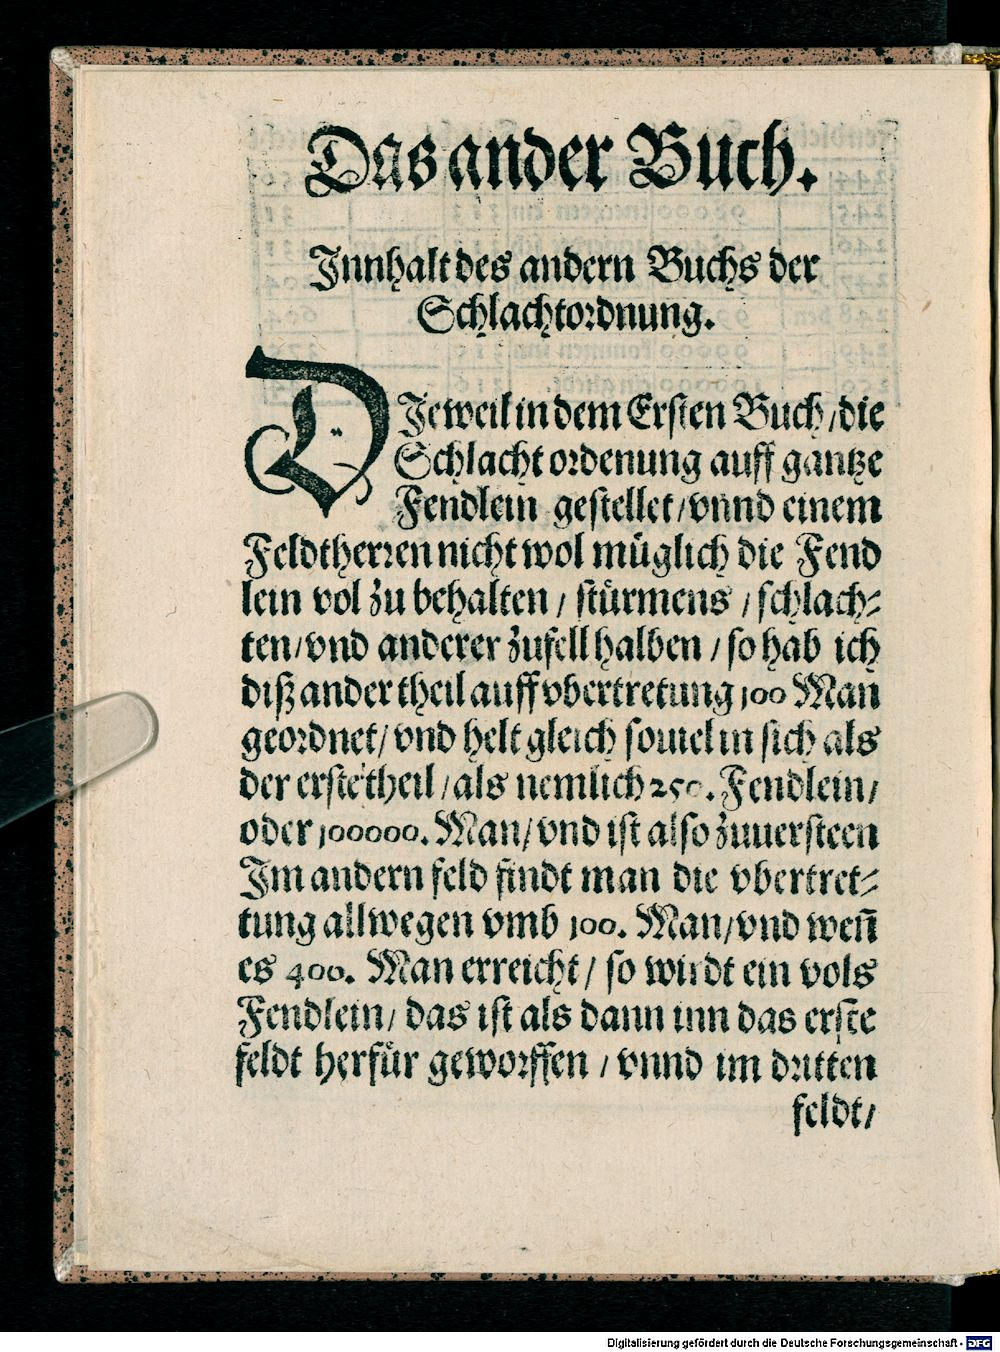 Das ander Buch.
Innhalt des andern Buchs der
Schlachtordnung.
DIeweil in dem Ersten Buch/die
Schlacht ordenung auff gantze
Fendlein gestellet/vnnd einem
Feldtherren nicht wol müglich die Fend
lein vol zu behalten / stürmens / schlach-
ten/vnd anderer zufell halben / so hab ich
diß ander theil auff vbertretung 100 Man
geordnet/ vnd helt gleich souiel in sich als
der erste theil / als nemlich 250. Fendlein/
oder 100000. Man/ vnd ist also zuuersteen
Im andern feld findt man die vbertret-
tung allwegen vmb 100. Man/vnd weñ
es 400. Man erreicht/ so wirdt ein vols
Fendlein/ das ist als dann inn das erste
feldt herfür geworffen / vnnd im dritten
feldt/
Digitalisierung gefördert durch die Deutsche Forschungsgemeinschaft - DFG